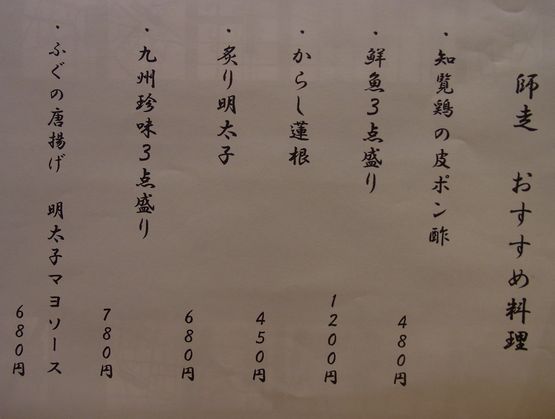 師走　おすすめ料理
・知覧鶏の皮ポン酢
480円
・鮮魚3点盛り
1200円
・からし蓮根
450円
・炙り明太子
680円
・九州珍味3点盛り
780円
・ふぐの唐揚げ　明太子マヨソース
680円